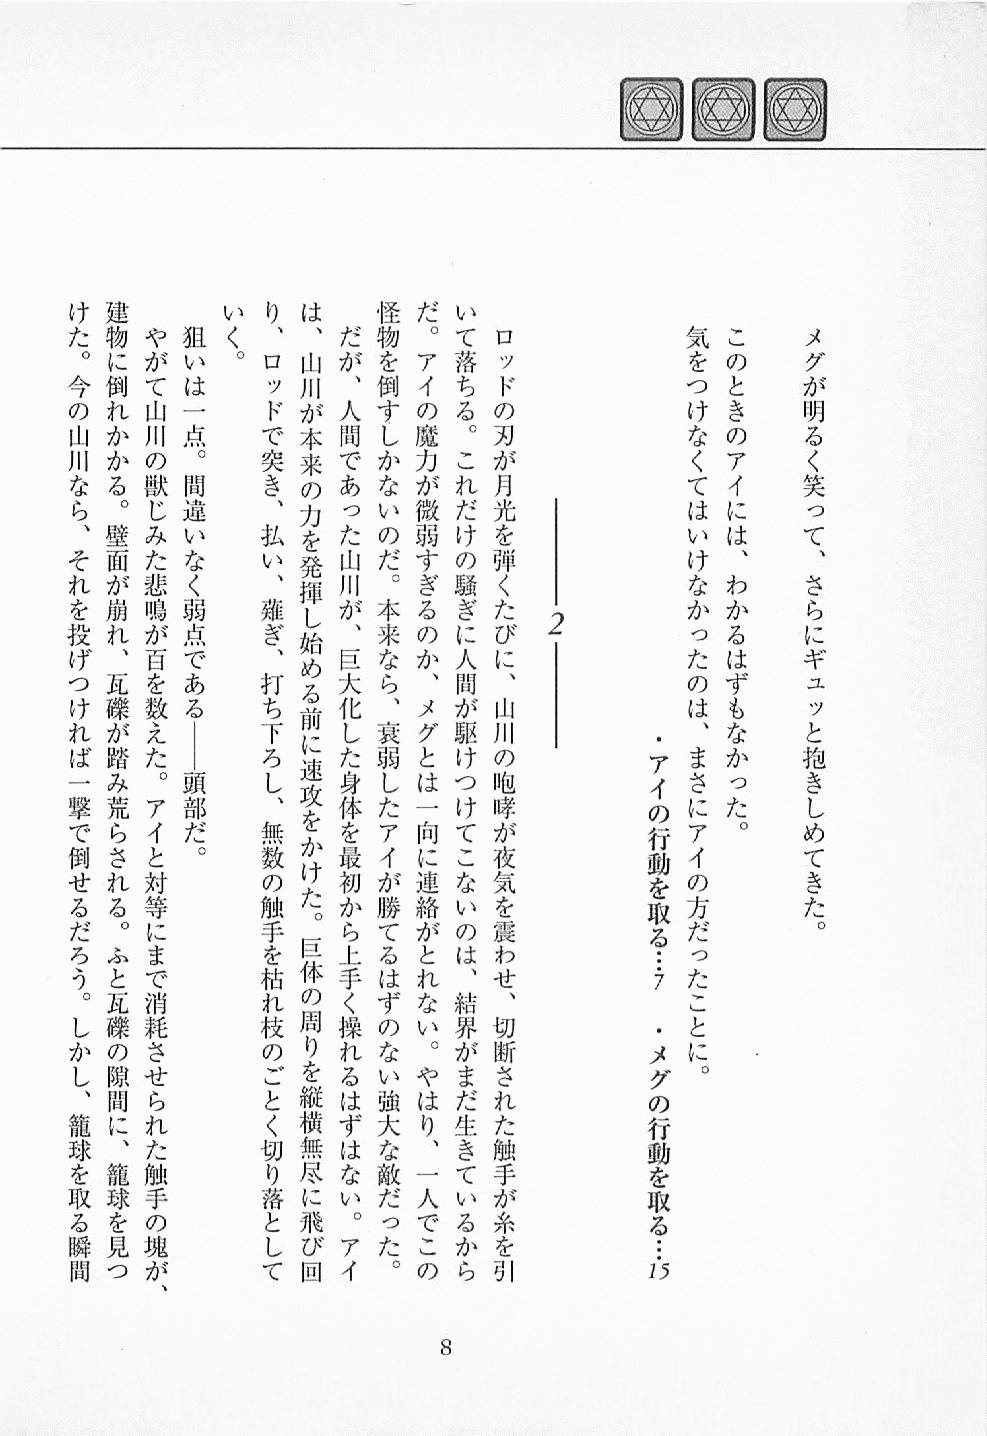 メグが明るく笑って、さらにギュッと抱きしめてきた。
このときのアイには、わかるはずもなかった。
気をつけなくてはいけなかったのは、まさにアイの方だったことに。
・アイの行動を取る…7　・メグの行動を取る…15
2
ロッドの刃が月光を弾くたびに、山川の咆哮が夜気を震わせ、切断された触手が糸を引
いて落ちる。これだけの騒ぎに人間が駆けつけてこないのは、結界がまだ生きているから
だ。アイの魔力が微弱すぎるのか、メグとは一向に連絡がとれない。やはり、一人でこの
怪物を倒すしかないのだ。本来なら、衰弱したアイが勝てるはずのない強大な敵だった。
だが、人間であった山川が、巨大化した身体を最初から上手く操れるはずはない。アイ
は、山川が本来の力を発揮し始める前に速攻をかけた。巨体の周りを縦横無尽に飛び回
り、ロッドで突き、払い、薙ぎ、打ち下ろし、無数の触手を枯れ枝のごとく切り落として
いく。
狙いは一点。間違いなく弱点である――頭部だ。
やがて山川の獣じみた悲鳴が百を数えた。アイと対等にまで消耗させられた触手の塊が、
建物に倒れかかる。壁面が崩れ、瓦礫が踏み荒らされる。ふと瓦礫の隙間に、籠球を見つ
けた。今の山川なら、それを投げつければ一撃で倒せるだろう。しかし、籠球を取る瞬間
8